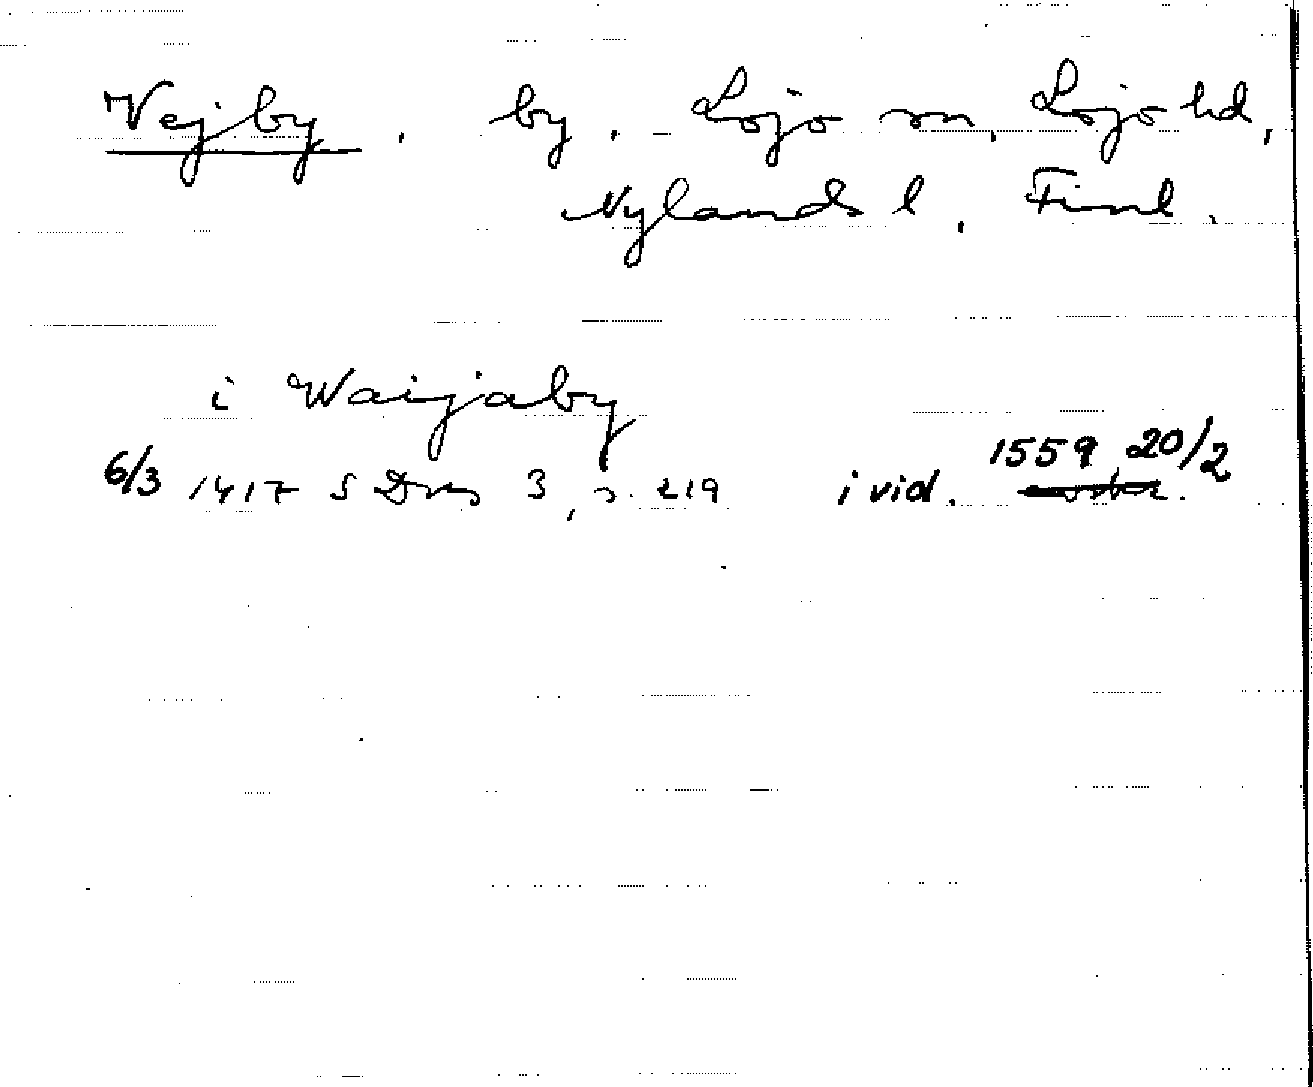 Vejby. by. Lojo sn, Lojo hd,
Nylands l, Finl.
i Waijaby
6/3 1417 S Dns 3, s. 219 i vid. 1559 20/2